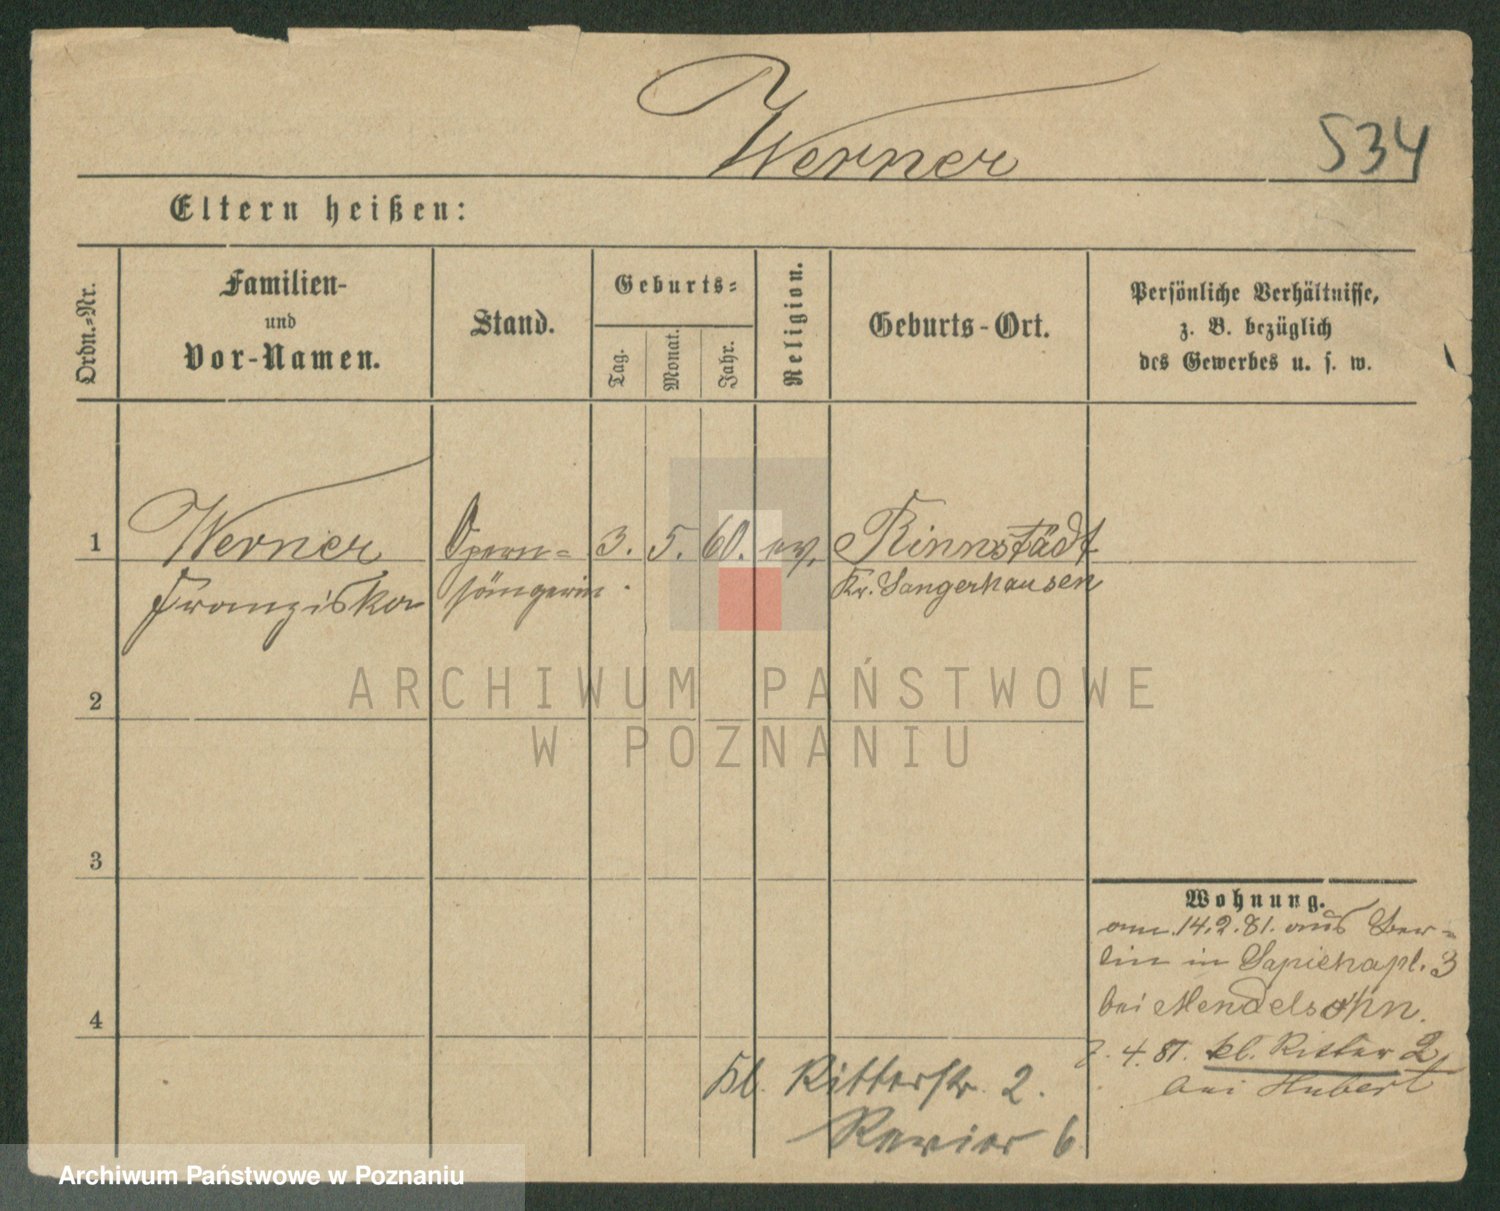 Werner
534
Eltern heißen:
Ordn.-Nr.
Familien-
und
Vor-Namen.
Stand.
Geburts-
Tag.
Monat.
Jahr.
Religion.
Geburts-Ort.
Persönliche Verhältnisse,
z. B. bezüglich
des Gewerbes u. s. w.
1
Werner
Franziska
Opern-
sängerin
3. 5. 60. ev.
Rinnstädt
Kr. Sangerhausen
2
3
4
Wohnung.
am 14.2.81. aus Ber-
lin in Sapiehapl. 3
bei Mendelsohn.
7. 4. 81. kl. Ritter 2
bei Hubert
Kl. Ritterstr. 2.
Revier 6
ARCHIWUM PAŃSTWOWE
W POZNANIU
Archiwum Państwowe w Poznaniu